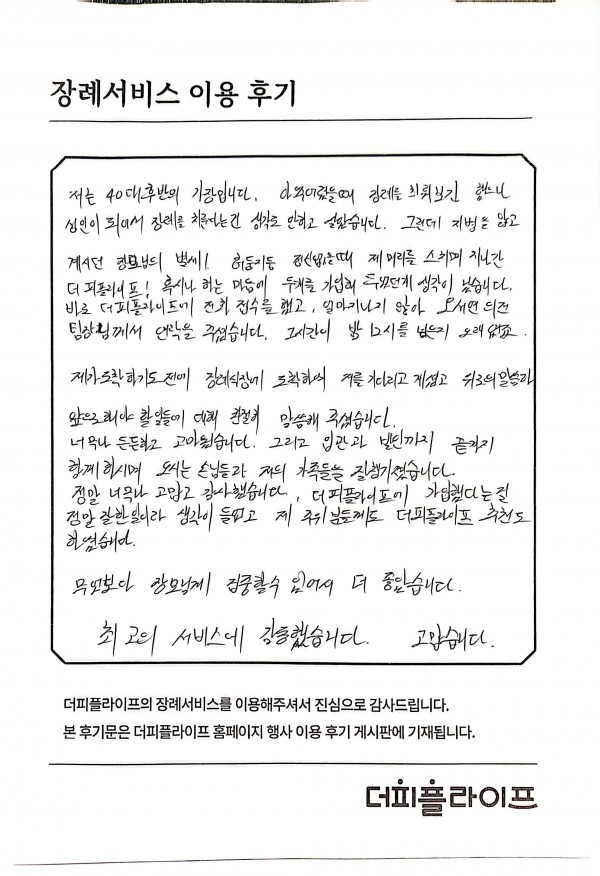 장례서비스 이용 후기
저는 40대후반의 가장입니다. 아주어렸을때 장례를 치뤄보긴 했으나
성인이 되어서 장례를 치룬다는건 생각도 안하고 살았습니다. 그런데 지병을 앓고
계시던 장모님의 별세! 허둥지둥 정신없을때 제 머리를 스치며 지나간
더피플라이프! 혹시나 하는 마음에 두개를 가입해 두었던게 생각이 났습니다.
바로 더피플라이프에 전화 접수를 했고, 얼마지나지 않아 오서연 의전
팀장님께서 연락을 주셨습니다. 그시간이 밤 12시를 넘은지 오래 였죠.
제가도착하기도전에 장례식장에 도착하셔 저를 기다리고 계셨고 위로의말씀과
앞으로해야 할일들에 대해 친절히 말씀해 주셨습니다.
너무나 든든하고 고마웠습니다. 그리고 입관과 발인까지 끝까지
함께 하시며 오시는 손님들과 저희 가족들을 잘챙기셨습니다.
정말 너무나 고맙고 감사했습니다, 더피플라이프에 가입했다는걸
정말 잘한일이라 생각이 들었고 제 주위 분들께도 더피플라이프 추천도
하였습니다.
무엇보다 장모님께 집중할수 있어서 더 좋았습니다.
최고의 서비스에 감동했습니다. 고맙습니다.
더피플라이프의 장례서비스를 이용해주셔서 진심으로 감사드립니다.
본 후기문은 더피플라이프 홈페이지 행사 이용 후기 게시판에 기재됩니다.
더피플라이프